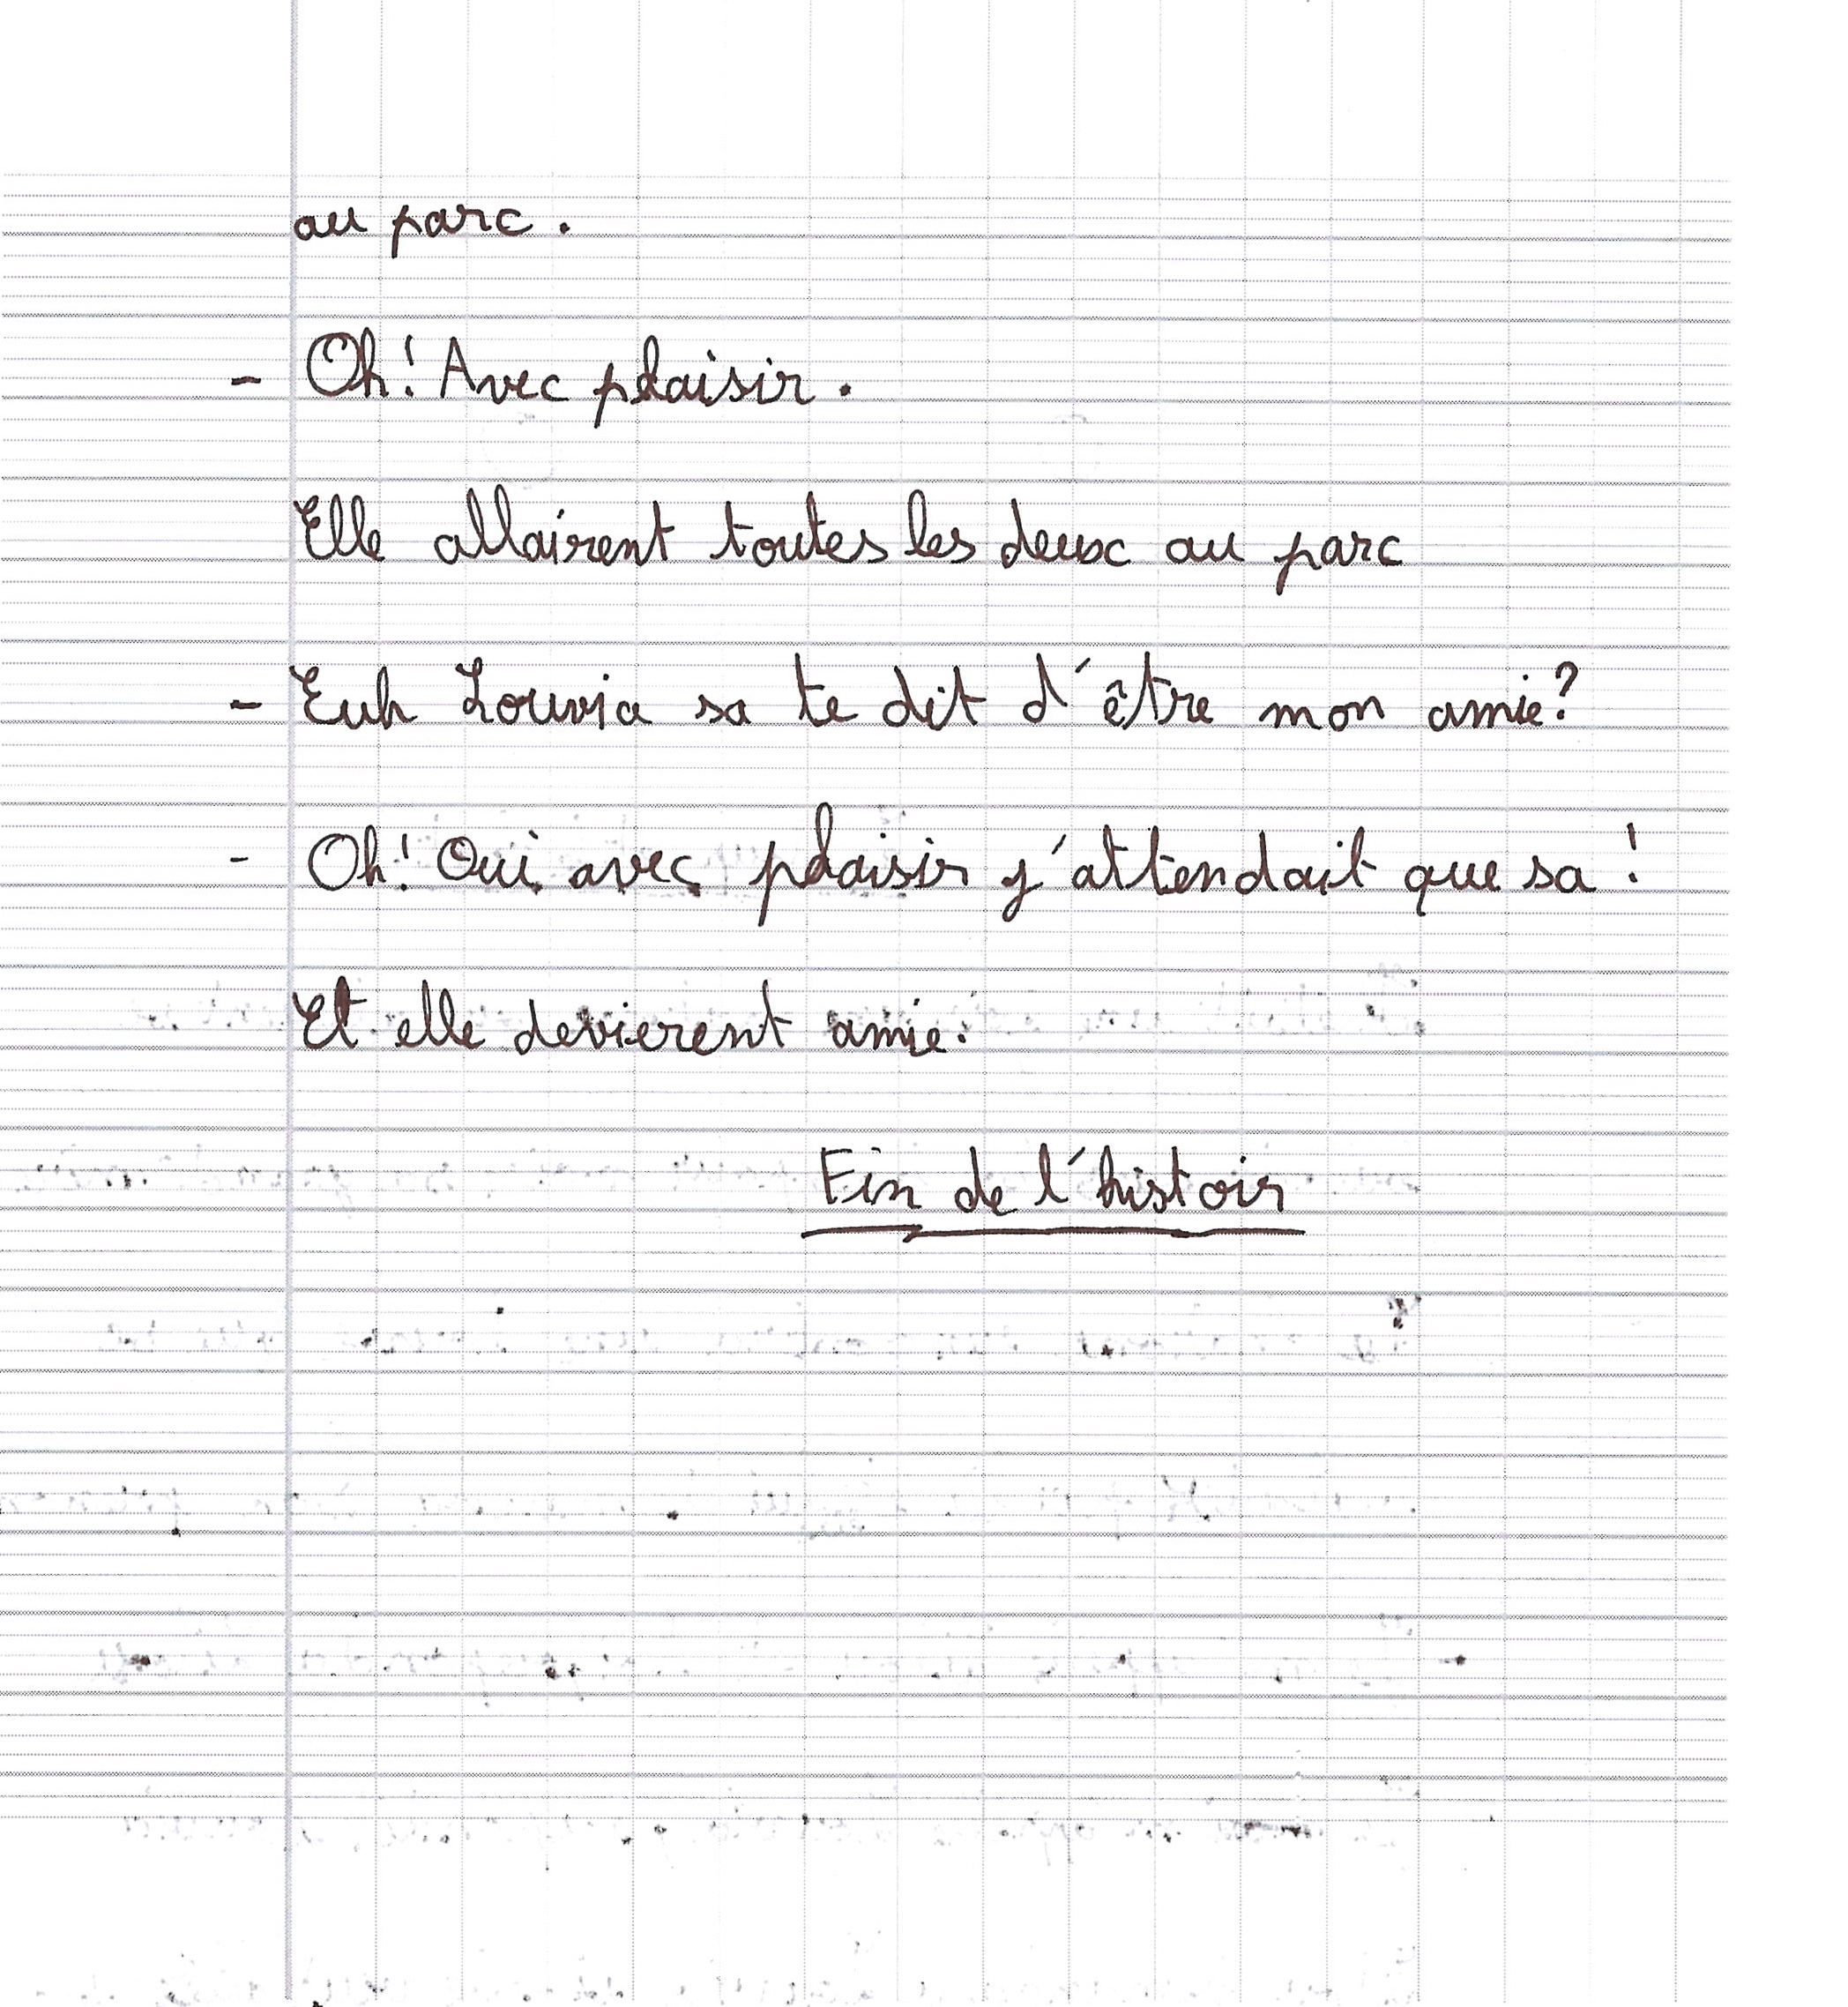 au parc.
- Oh! Avec plaisir.
Elle allairent toutes les deux au parc
- Euh Louvia sa te dit d'être mon amie?
- Oh! Oui avec plaisir j'attendait que sa!
Et elle devierent amie.
Fin de l'histoir